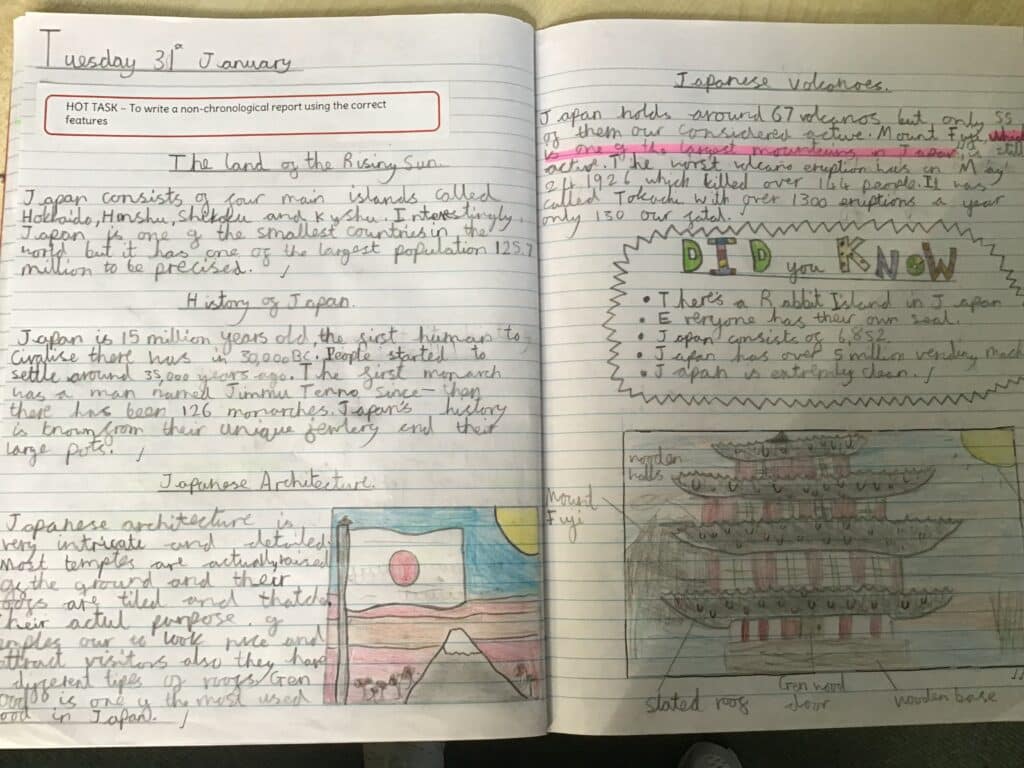 Tuesday 31st January
HOT TASK – To write a non-chronological report using the correct
features
The Land of the Rising Sun.
Japan consists of four main islands called
Hokkaido, Honshu, Shikoku and Kyshu. Interestingly,
Japan is one of the smallest countries in the
world but it has one of the largest population 125.7
million to be precised. /
History of Japan.
Japan is 15 million years old the first human to
Civalise there was in 30,000BC. People started to
settle around 35,000 years ago. The first monarch
was a man named Jimmu Tenno since then
there has been 126 monarches. Japan's history
is known from their unique jewlery and their
large pots. /
Japanese Architecture.
Japanese architecture is
very intricate and detailed.
Most temples are actually raised
off the ground and their
roofs are tiled and thatch
their actul purpose of
temples our to look nice and
attract visitors also they have
different tipes of roofs
is one of the most used
in Japan. /
Japanese Volcanoes.
Japan holds around 67 volcanos but only 55
of them our considered active. Mount Fuji, which
is one of the largest mounteins in Japan, is still
active. The worst volcano eruption was on May
24 1926 which killed over 144 people. It was
called Tokachi with over 1300 eruptions a year
only 130 our fatal.
DID you KNOW
• There's a Rabbit Island in Japan
• Everyone has their own seal.
• Japan consists of 6,852
• Japan has over 5 million vending mach
• Japan is extremly clean. /
wooden
walls
Mount
Fuji
slated roof
door
wooden base